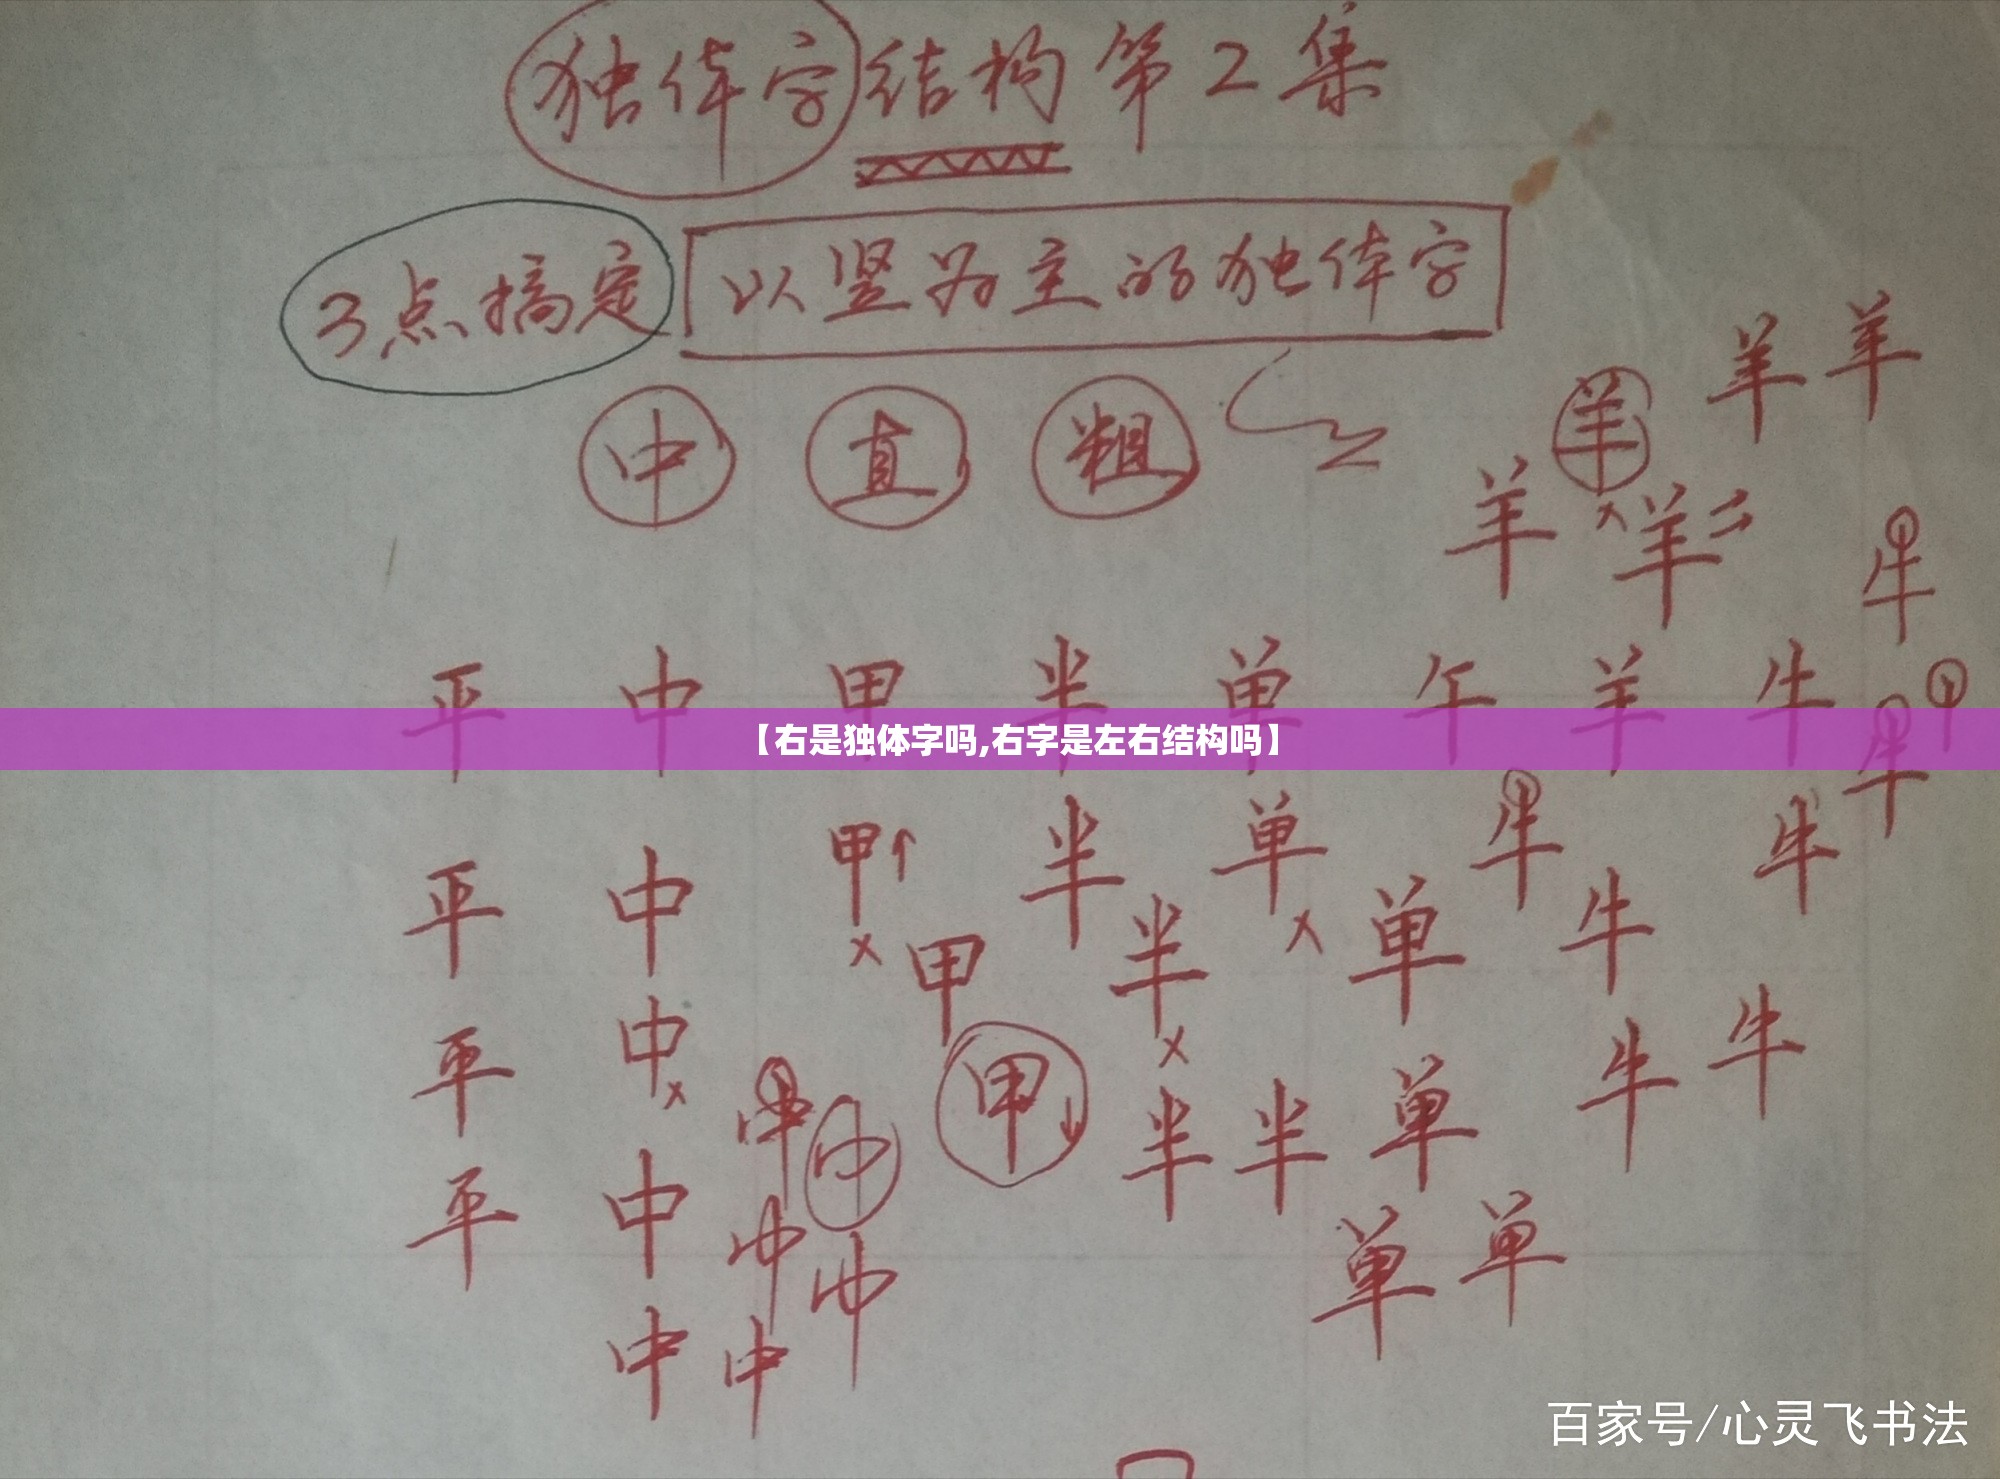 独体字结构第2集
3点搞定 以竖为主的独体字
中 直 粗
羊 羊 羊
羊 羊
牛
平 中 甲 半 单 午 羊 牛
牛
【右是独体字吗,右字是左右结构吗】
甲 半 单 牛 牛
平 中 甲 半 单 牛
平 中 甲 牛 牛
中 中 半 半 单
平 中 中 中 单 单
中 中
百家号/心灵飞书法